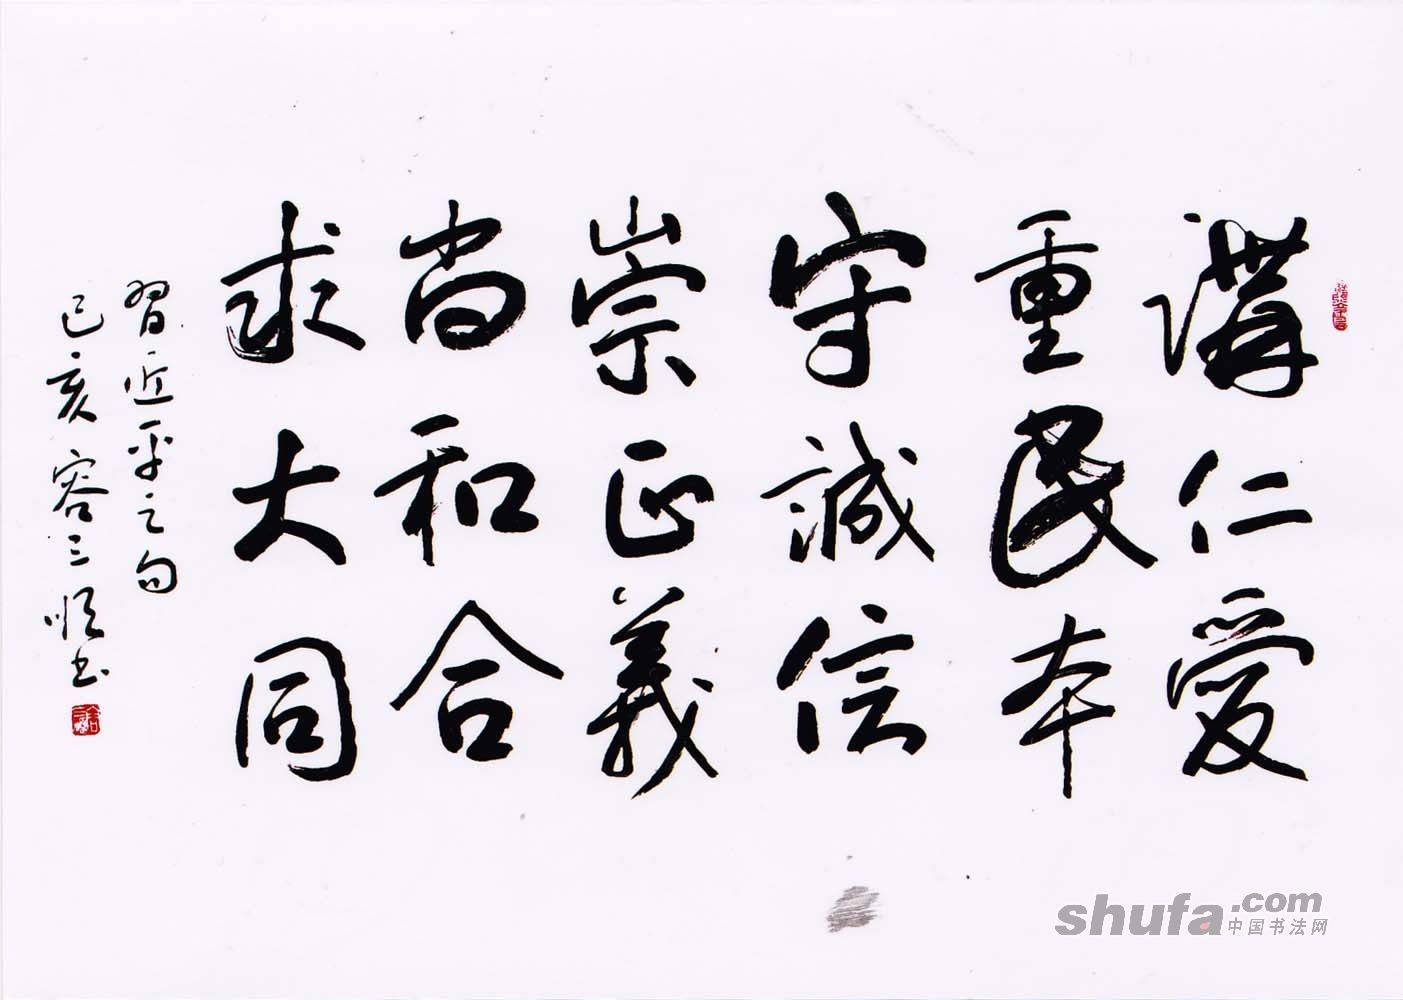 講仁愛
重民本
守誠信
崇正義
尚和合
求大同
習近平之句
己亥容三順书
shufa.com
中国书法网